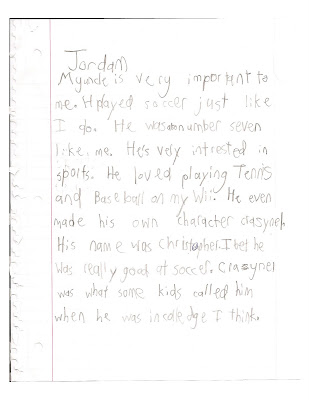 Jordan
My uncle is very important to
me. H played soccer just like
I do. He was number seven
like me. He's very intrested in
sports. He loved playing Tennis
and Baseball on my Wii. He even
made his own character crasynel.
His name was Christopher. I bet he
was really good at soccer. Crasynel
was what some kids called him
when he was in colledge I think.